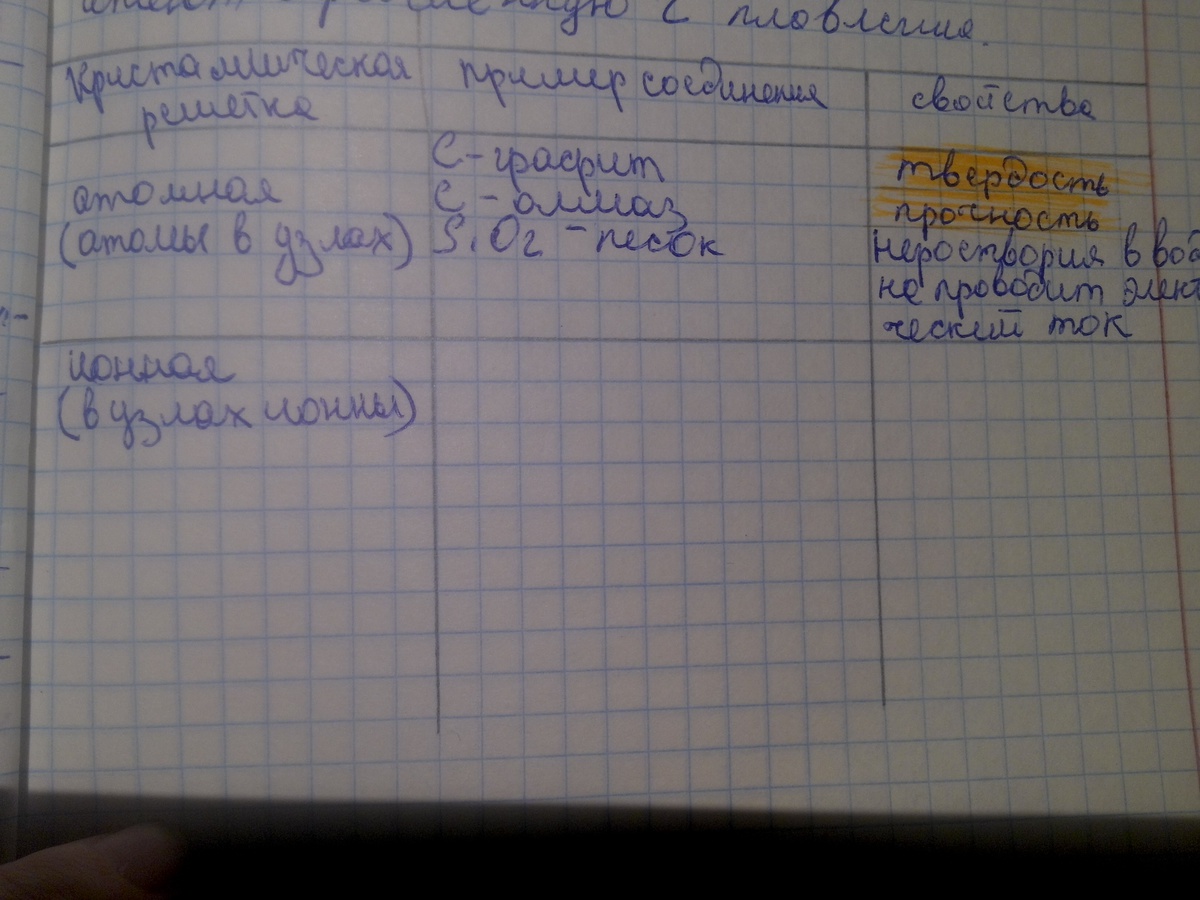 с пловления.
Кристаллическая
решетка
пример соединения
свойства
атомная
(атомы в узлах)
С - графит
С - алмаз
SiO2 - песок
твердость
прочность
нероствория в вод
не проводит элект
ческий ток
ионная
(в узлах ионны)